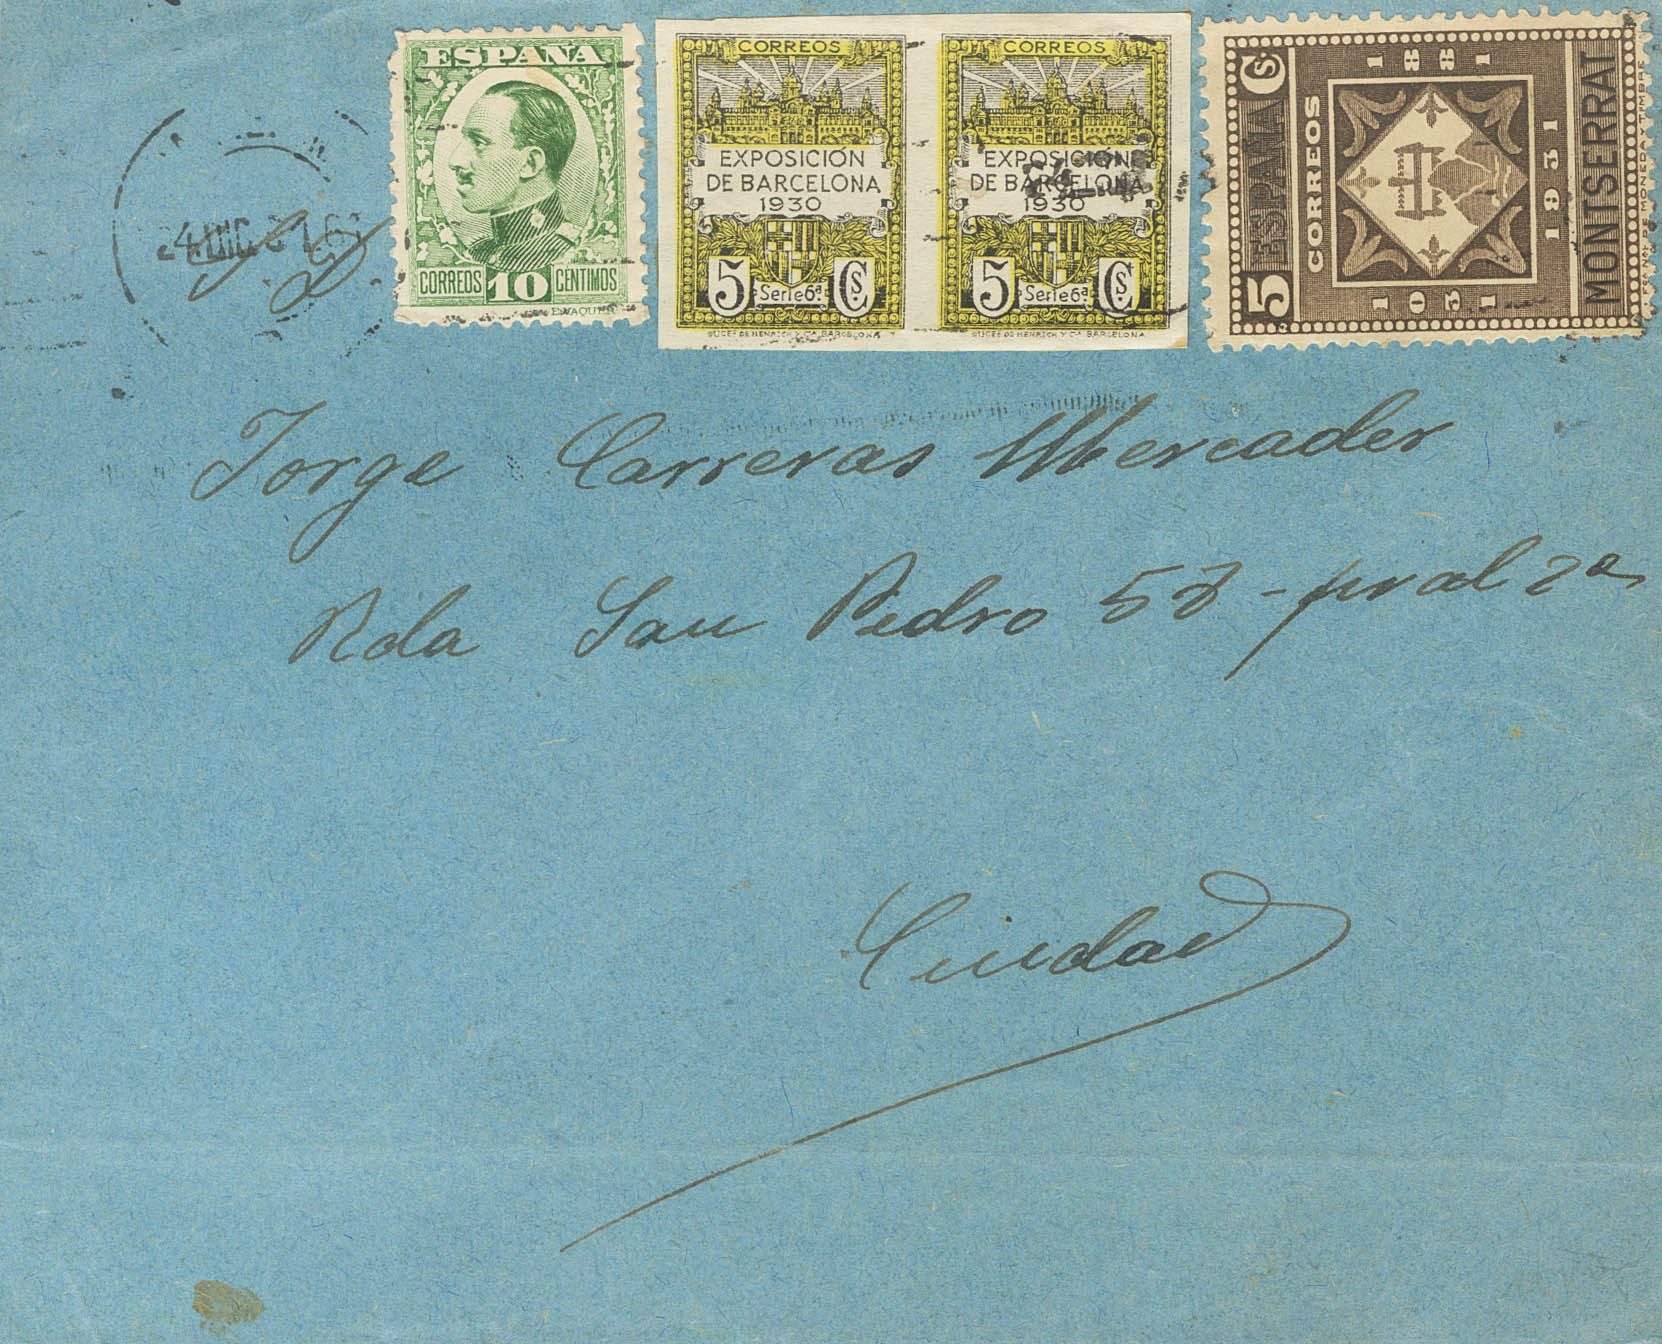 ESPAÑA
CORREOS 10 CÉNTIMOS
E.VAQUER
CORREOS
EXPOSICIÓN
DE BARCELONA
1930
5 Cs.
Serie 6ª
SUCES DE HENRICH Y Cª BARCELONA
CORREOS
EXPOSICIÓN
DE BARCELONA
1930
5 Cs.
Serie 6ª
SUCES DE HENRICH Y Cª BARCELONA
5 ESPAÑA Cs
CORREOS
1031 1881
1931
MONTSERRAT
Jorge Carreras Mercader
Rda San Pedro 57 - pral 2ª
Ciudad